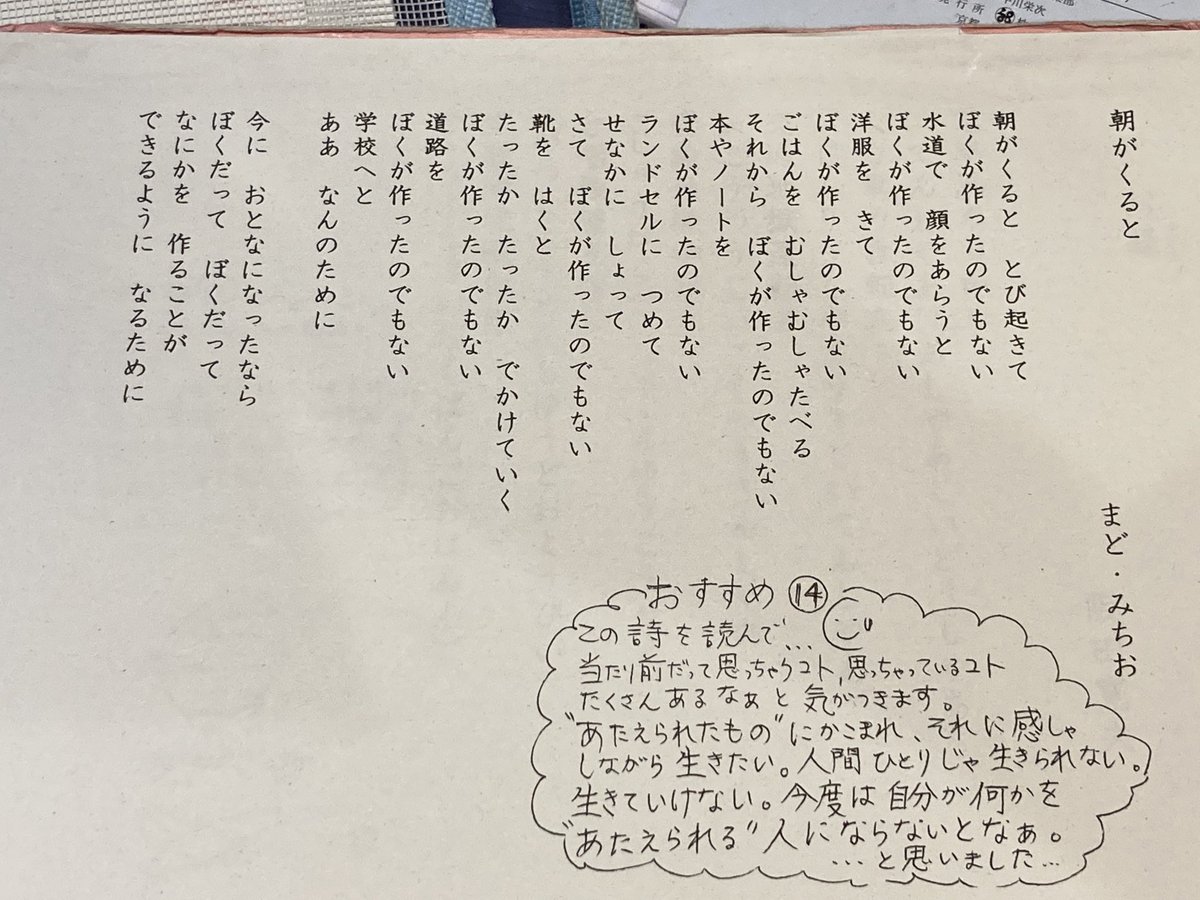 朝がくると
まど・みちお
朝がくると とび起きて
ぼくが作ったのでもない
水道で 顔をあらうと
ぼくが作ったのでもない
洋服を きて
ぼくが作ったのでもない
ごはんを むしゃむしゃたべる
それから ぼくが作ったのでもない
本やノートを
ぼくが作ったのでもない
ランドセルに つめて
せなかに しょって
さて ぼくが作ったのでもない
靴を はくと
たったか たったか でかけていく
ぼくが作ったのでもない
道路を
ぼくが作ったのでもない
学校へと
ああ なんのために
今に おとなになったなら
ぼくだって ぼくだって
なにかを 作ることが
できるように なるために
おすすめ ⑭
この詩を読んで…
当たり前だって思っちゃうコト,思っちゃっているコト
たくさんあるなぁと 気がつきます。
"あたえられたもの"にかこまれ、それに感しゃ
しながら生きたい。人間ひとりじゃ生きられない。
生きていけない。今度は自分が何かを
"あたえられる"人にならないとなぁ。
…と思いました…
発行所
川栄次
京都